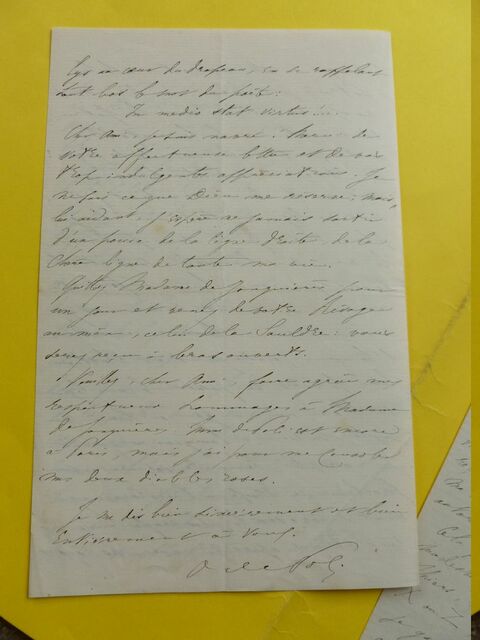 lys au cœur du drapeau, en se rappelant
tout bas le mot du poète :
In medio stat virtus !...
Cher Ami, je suis navré. Merci de
votre affectueuse lettre et de vos
trop indulgentes appréciations. Je
ne sais ce que Dieu me réserve ; mais,
lui aidant, j'espère ne jamais sortir
d'un pouce de la ligne droite, de la
ligne de toute ma vie.
Quittez Madame de Jonquières pour
un jour et venez de votre rivage
au mien, celui de la Sauldre : vous
serez reçu à bras ouverts.
Veuillez, cher Ami, faire agréer mes
respectueux hommages à Madame
de Jonquières. Mme de est encore
à Paris, mais j'ai pour me consoler
mes deux diables roses.
Je me dis bien sincèrement et bien
Entièrement à vous.